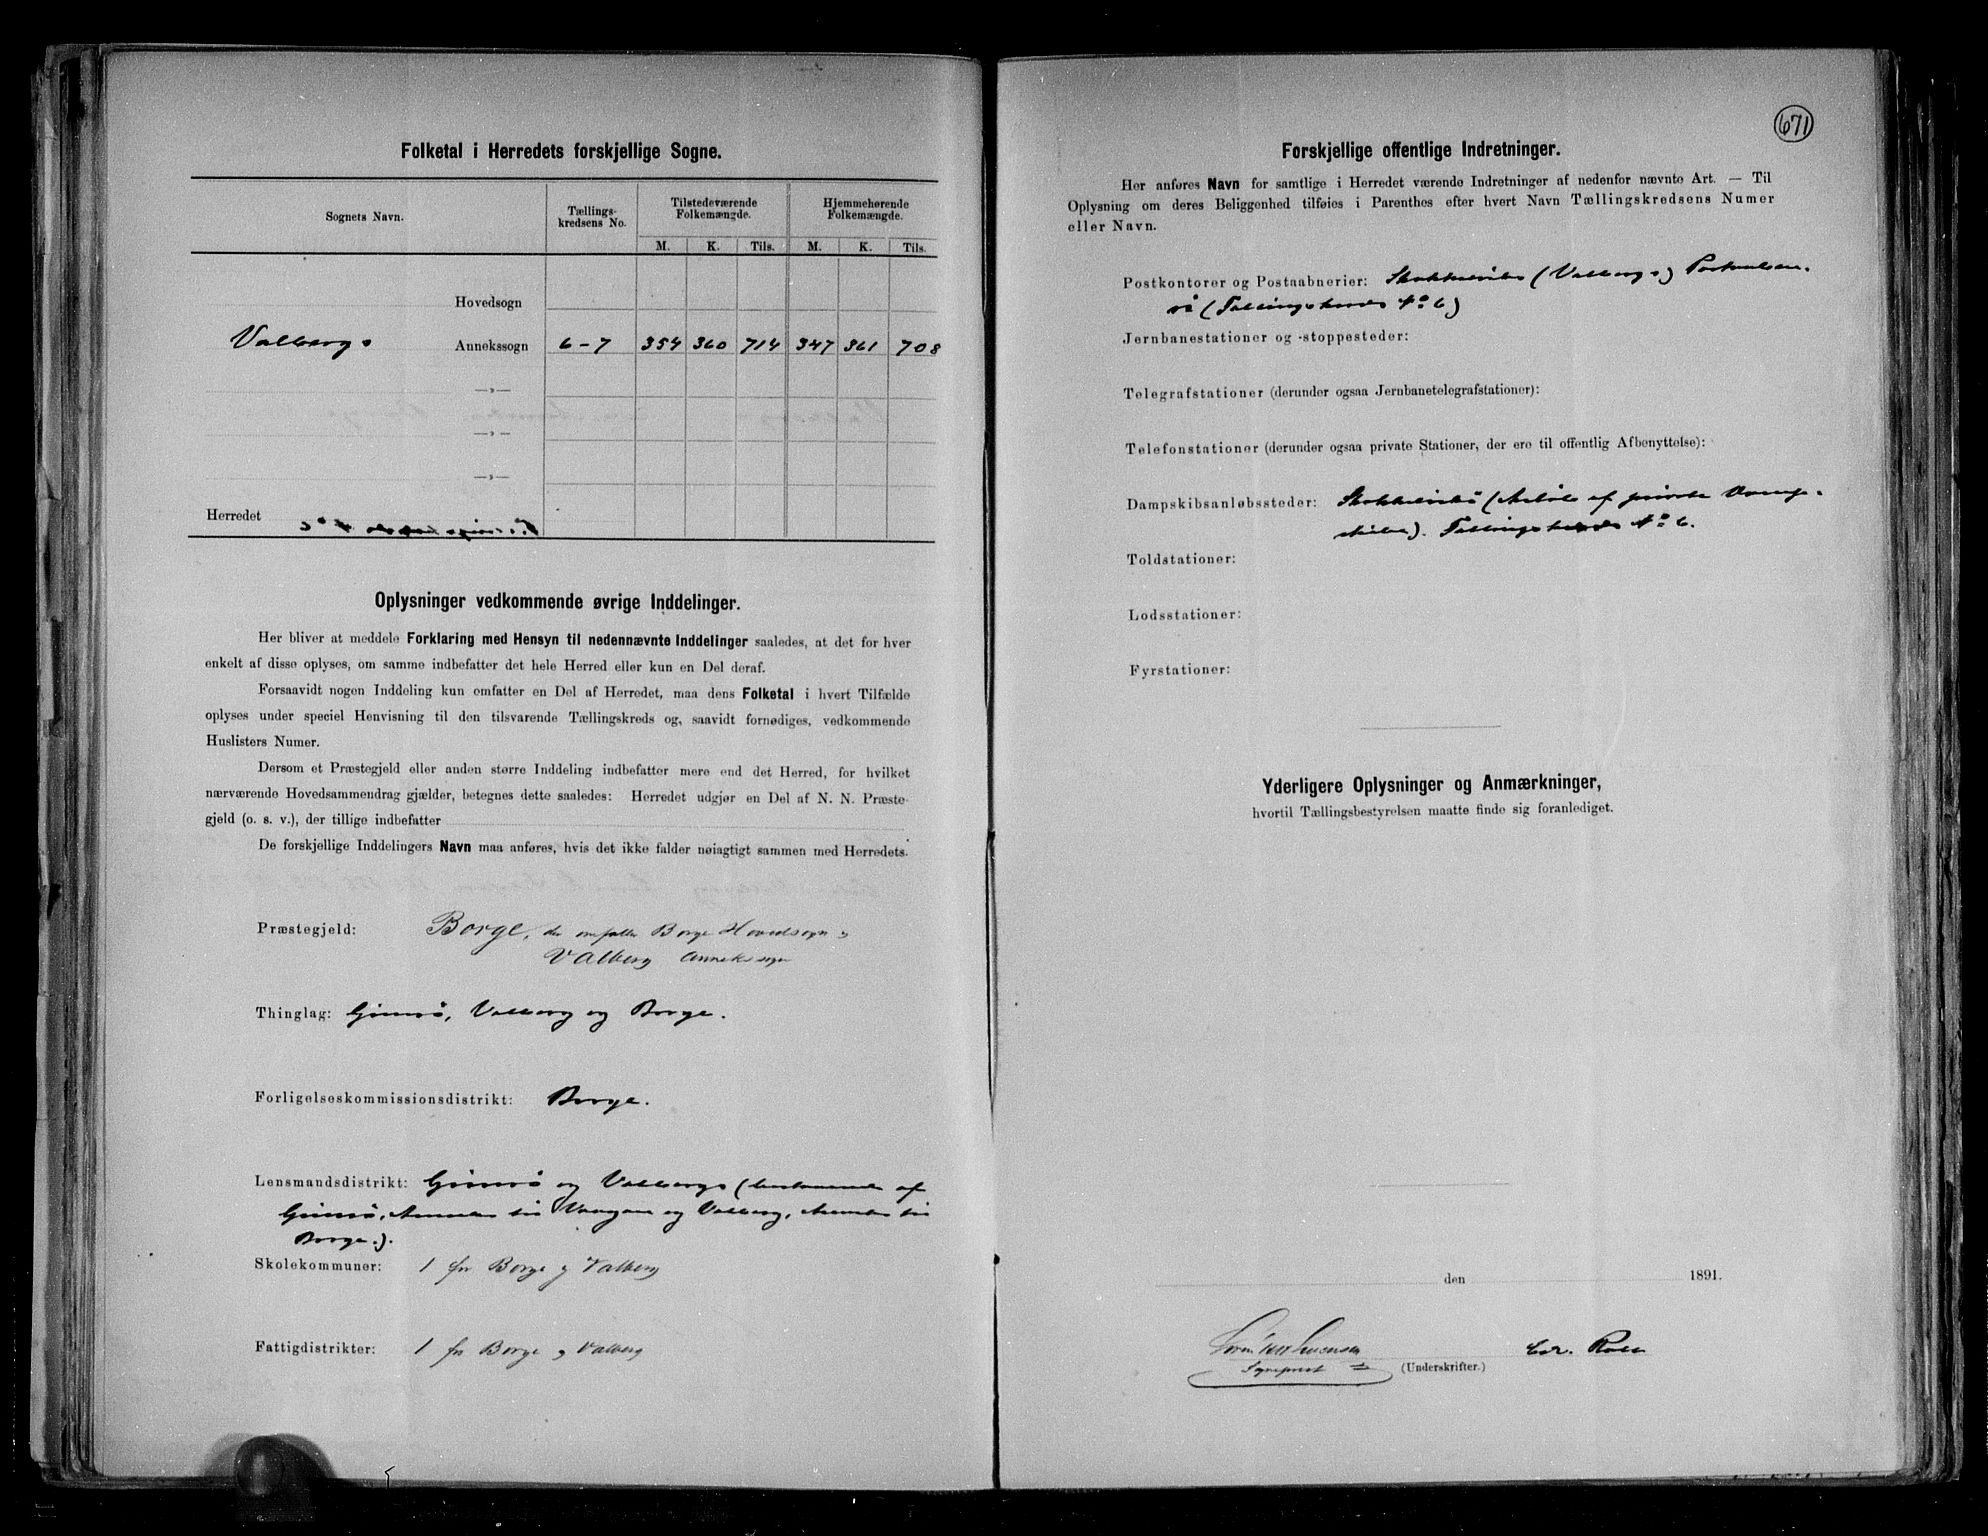 Folketal i Herredets forskjellige Sogne.
Sognets Navn.
Tællings-
kredsens No.
Tilstedeværende
Folkemængde.
Hjemmehørende
Folkemængde.
M. K. Tils. M. K. Tils.
Hovedsogn
Valbergs Annekssogn 6-7 354 360 714 347 361 708
—„—
—„—
—„—
Herredet
Oplysninger vedkommende øvrige Inddelinger.
Her bliver at meddele Forklaring med Hensyn til nedennævnte Inddelinger saaledes, at det for hver
enkelt af disse oplyses, om samme indbefatter det hele Herred eller kun en Del deraf.
Forsaavidt nogen Inddeling kun omfatter en Del af Herredet, maa dens Folketal i hvert Tilfælde
oplyses under speciel Henvisning til den tilsvarende Tællingskreds og, saavidt fornødiges, vedkommende
Huslisters Numer.
Dersom et Præstegjeld eller anden større Inddeling indbefatter mere end det Herred, for hvilket
nærværende Hovedsammendrag gjælder, betegnes dette saaledes: Herredet udgjør en Del af N. N. Præste-
gjeld (o. s. v.), der tillige indbefatter
De forskjellige Inddelingers Navn maa anføres, hvis det ikke falder nøiagtigt sammen med Herredets.
Præstegjeld: Borge, der omfatter Borge Hovedsogn og
Valberg Annekssogn
Thinglag: Gimsø, Valberg og Borge.
Forligelseskommissionsdistrikt: Borge.
Lensmandsdistrikt: Gimsø og Valbergs (bestaaende af
Gimsø, Anneks til Vaagan og Valberg, Anneks til
Borge.).
Skolekommuner: 1 for Borge og Valberg
Fattigdistrikter: 1 for Borge og Valberg
671
Forskjellige offentlige Indretninger.
Her anføres Navn for samtlige i Herredet værende Indretninger af nedenfor nævnte Art. — Til
Oplysning om deres Beliggenhed tilføies i Parenthes efter hvert Navn Tællingskredsens Numer
eller Navn.
Postkontorer og Postaabnerier: (Valbergs)
(Tællingskreds No 6)
Jernbanestationer og -stoppesteder:
Telegrafstationer (derunder ogsaa Jernbanetelegrafstationer):
Telefonstationer (derunder ogsaa private Stationer, der ere til offentlig Afbenyttelse):
Dampskibsanløbssteder: (Anløb af private Damp-
skibe). Tællingskreds No 6.
Toldstationer:
Lodsstationer:
Fyrstationer:
Yderligere Oplysninger og Anmærkninger,
hvortil Tællingsbestyrelsen maatte finde sig foranlediget.
den 1891.
(Underskrifter.)